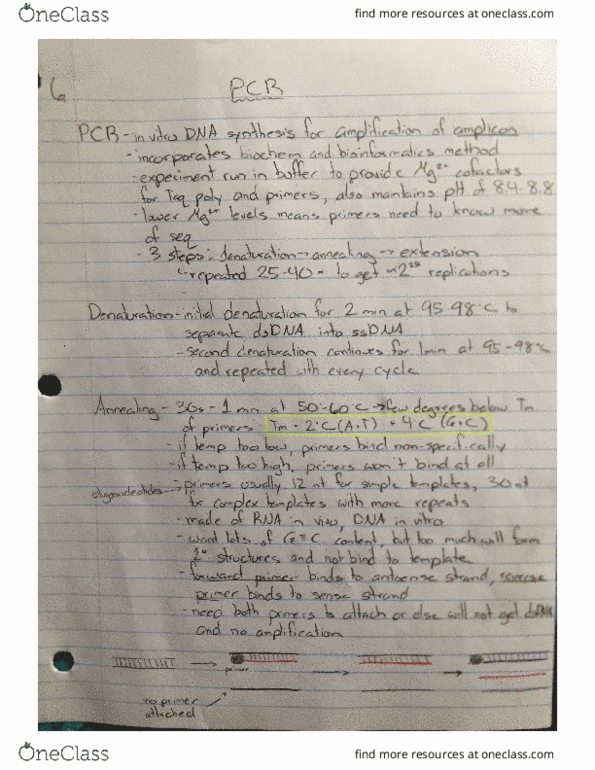 OneClass
find more resources at oneclass.com
6
PCR
PCR - in vitro DNA synthesis for amplification of amplicon
- incorporates biochem and bioinformatics method
- experiment run in buffer to provide Mg²⁺ cofactors
for Taq poly and primers, also maintains pH of 8.4-8.8
- lower Mg²⁺ levels means primers need to know more
of seq
- 3 steps: denaturation → annealing → extension
↳ repeated 25-40 to get ~2²⁵ replications
Denaturation - initial denaturation for 2 min at 95-98°C to
separate dsDNA into ssDNA
- second denaturation continues for 1 min at 95-98°C
and repeated with every cycle
Annealing - 30s - 1 min at 50°-60°C → few degrees below Tm
of primers: Tm = 2°C (A+T) + 4°C (G+C)
- if temp too low, primers bind non-specifically
- if temp too high, primers won't bind at all
oligonucleotides → primers usually 12 nt for simple templates, 30 nt
for complex templates with more repeats
- made of RNA in vivo, DNA in vitro
- want lots of G≡C content, but too much will form
2° structures and not bind to template
- forward primer binds to antisense strand, reverse
primer binds to sense strand
- need both primers to attach or else will not get dsDNA
and no amplification
primer
no primer
attached
OneClass
find more resources at oneclass.com